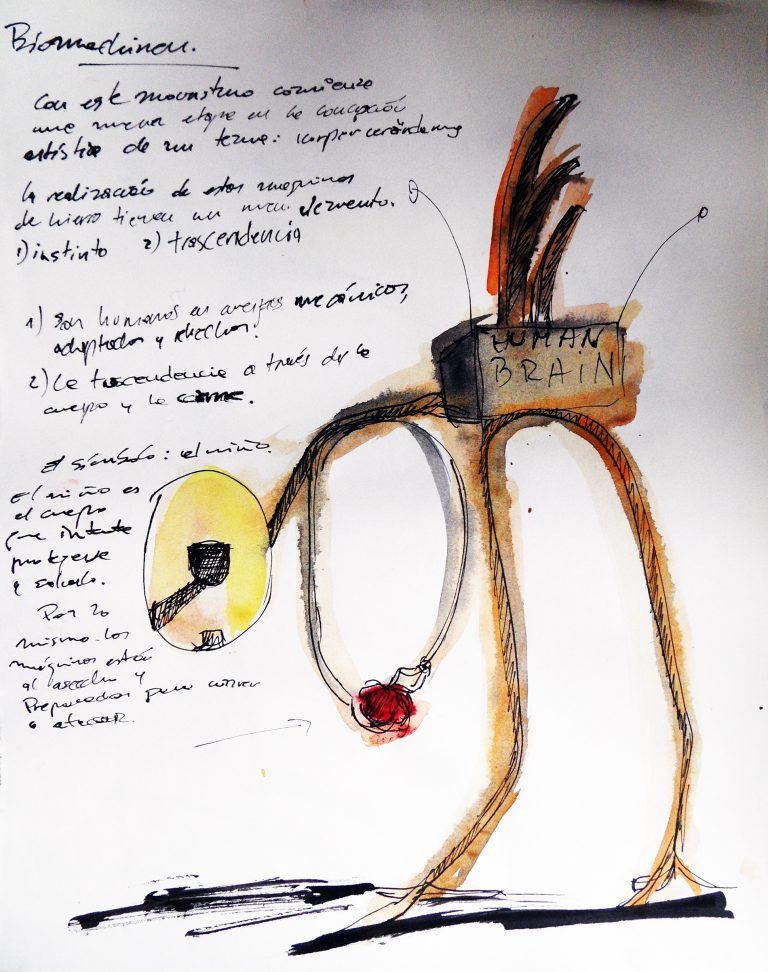 Biomaschinen.
Con este monstruo comienza
una nueva etapa en la concepción
artística de un tema: Körperveränderung
La realización de estas maquinas
de hierro tienen un elemento.
1) instinto 2) trascendencia
1) Son humanos en cuerpos mecánicos,
adaptados y hechos.
2) La trascendencia a través de la
cuerpo y la carne.
El símbolo: el niño.
El niño es
el cuerpo
que intenta
protegerse
y salvarlo.
Por lo
mismo las
máquinas están
al asecho y
Preparadas para correr
o atacar.
HUMAN
BRAIN